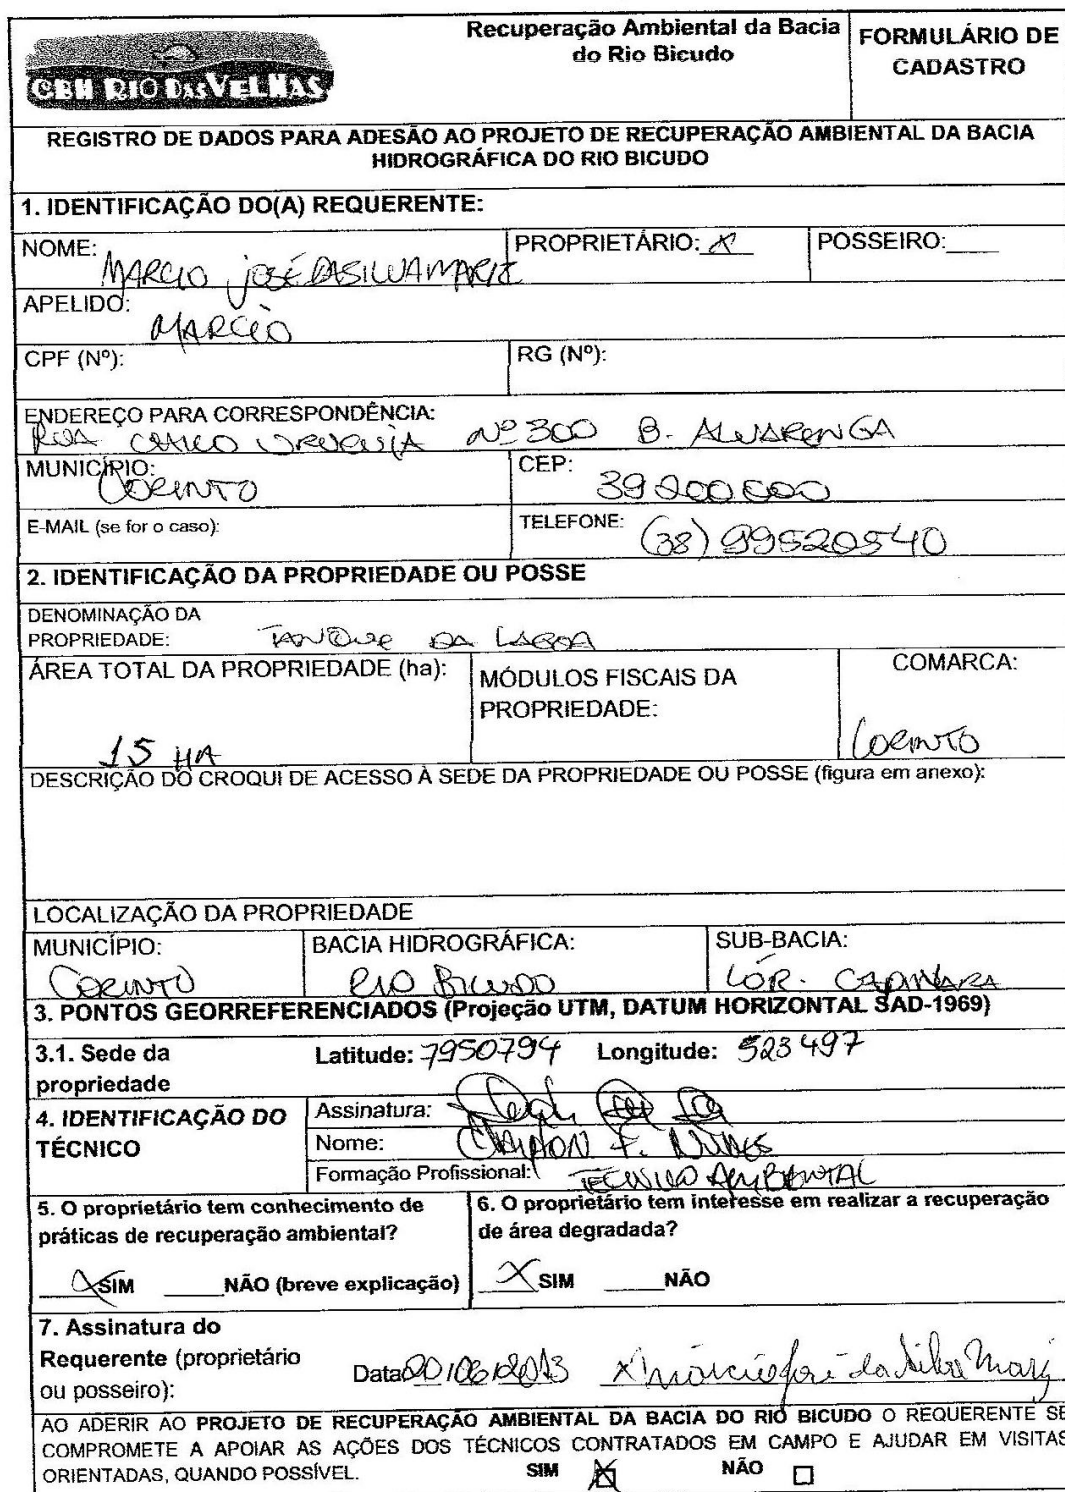 CBH RIO DAS VELHAS
Recuperação Ambiental da Bacia
do Rio Bicudo
FORMULÁRIO DE
CADASTRO
REGISTRO DE DADOS PARA ADESÃO AO PROJETO DE RECUPERAÇÃO AMBIENTAL DA BACIA
HIDROGRÁFICA DO RIO BICUDO
1. IDENTIFICAÇÃO DO(A) REQUERENTE:
NOME: MARCIO JOSÉ DA SILVA MARIZ
PROPRIETÁRIO: X
POSSEIRO:____
APELIDO: MARCIO
CPF (Nº):
RG (Nº):
ENDEREÇO PARA CORRESPONDÊNCIA:
RUA Nº 300 B. ALVARENGA
MUNICÍPIO: CORINTO
CEP: 39200000
E-MAIL (se for o caso):
TELEFONE: (38) 99520540
2. IDENTIFICAÇÃO DA PROPRIEDADE OU POSSE
DENOMINAÇÃO DA
PROPRIEDADE: TANQUE DA LAGOA
ÁREA TOTAL DA PROPRIEDADE (ha):
15 HA
MÓDULOS FISCAIS DA
PROPRIEDADE:
COMARCA:
CORINTO
DESCRIÇÃO DO CROQUI DE ACESSO À SEDE DA PROPRIEDADE OU POSSE (figura em anexo):
LOCALIZAÇÃO DA PROPRIEDADE
MUNICÍPIO:
CORINTO
BACIA HIDROGRÁFICA:
RIO BICUDO
SUB-BACIA:
CÓR. CAPIVARA
3. PONTOS GEORREFERENCIADOS (Projeção UTM, DATUM HORIZONTAL SAD-1969)
3.1. Sede da
propriedade
Latitude: 7950794 Longitude: 523497
4. IDENTIFICAÇÃO DO
TÉCNICO
Assinatura:
Nome: CLAYTON F. NUNES
Formação Profissional: TÉCNICO AMBIENTAL
5. O proprietário tem conhecimento de
práticas de recuperação ambiental?
X SIM _____NÃO (breve explicação)
6. O proprietário tem interesse em realizar a recuperação
de área degradada?
X SIM _____NÃO
7. Assinatura do
Requerente (proprietário
ou posseiro):
Data 20/06/2013 x Márcio José da Silva Mariz
AO ADERIR AO PROJETO DE RECUPERAÇÃO AMBIENTAL DA BACIA DO RIO BICUDO O REQUERENTE SE
COMPROMETE A APOIAR AS AÇÕES DOS TÉCNICOS CONTRATADOS EM CAMPO E AJUDAR EM VISITAS
ORIENTADAS, QUANDO POSSÍVEL. SIM X NÃO